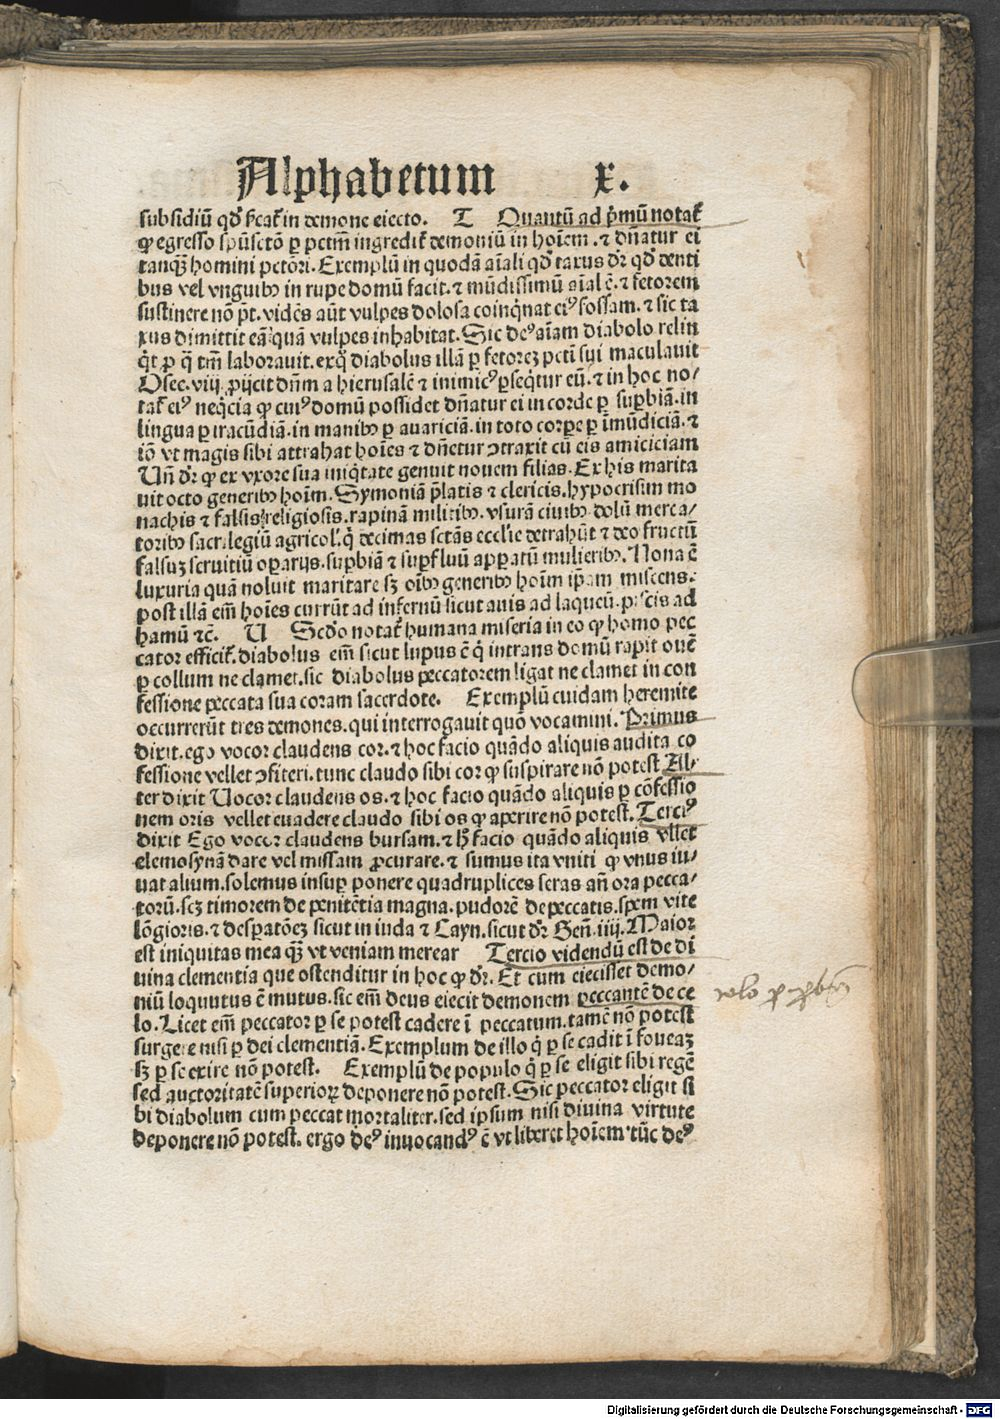 Alphabetum x.
subsidiū qđ p̄cat̄ in demone eiecto. T Quantū ad p̄mū notat̄
ꝙ egresso spūsctō ꝑ pctm̄ ingredit̄ demoniū in hoīem . ⁊ dn̄atur ei
tanqꝫ homini pctōri. Exemplū in quodā aīali qđ taxus dr̄ qđ denti
bus vel vnguibꝰ in rupe domū facit. ⁊ mūdissimū aīal ē. ⁊ fetorem
sustinere nō pt̄. vidēs aūt vulpes dolosa coinq̄nat eiꝰ fossam. ⁊ sic ta
xus dimittit eā quā vulpes inhabitat. Sic deꝰ aīam diabolo relin
q̄t ꝓ q̄ tm̄ laborauit. exq̄ diabolus illā ꝑ fetorеꝫ pcti sui maculauit
Osee. viij. ꝓijcit dn̄m a hierusalē ⁊ inimicꝰ ꝑseq̄tur eū. ⁊ in hoc no/
tat̄ eiꝰ neq̄cia ꝙ cuiꝰ domū possidet dn̄atur ei in corde ꝑ suꝑbiā. in
lingua ꝑ iracūdiā. in manibꝰ ꝑ auariciā. in toto corꝑe ꝑ īmūdiciā. ⁊
iō vt magis sibi attrahat hoīes ⁊ dn̄etur ↄtraxit cū eis amiciciam
Un̄ dr̄ ꝙ ex vxore sua iniq̄tate genuit nouem filias. Ex his marita
uit octo generibꝰ hoīm. Symoniā p̄latis ⁊ clericis. hypocrisim mo
nachis ⁊ falsis religiosis. rapinā militibꝰ. vsurā ciuibꝰ dolū merca/
toribꝰ sacrilegiū agricol̄. q̄ decimas sctās eccl̄ie detrahūt ⁊ deo fructū
falsuꝫ seruitiū oꝑarijs. suꝑbiā ⁊ suꝑfluū apꝑatū mulieribꝰ. Nona ē
luxuria quā noluit maritare sꝫ oībꝰ generibꝰ hoīm ip̄am miscens.
post illā em̄ hoīes currūt ad infernū sicut auis ad laqueū. piscis ad
hamū ⁊c. U Scđo notat̄ humana miseria in eo ꝙ homo pec
cator efficit̄. diabolus em̄ sicut lupus ē q̄ intrans domū rapit ouē
ꝑ collum ne clamet. sic diabolus peccatorem ligat ne clamet in con
fessione peccata sua coram sacerdote. Exemplū cuidam heremite
occurrerūt tres demones. qui interrogauit quō vocamini. Primus
dixit. ego vocor claudens cor. ⁊ hoc facio quādo aliquis audita co
fessione vellet ↄfiteri. tunc claudo sibi cor ꝙ suspirare nō potest Al-
ter dixit Uocor claudens os. ⁊ hoc facio quādo aliquis ꝑ cōfessio
nem oris vellet euadere claudo sibi os ꝙ aperire nō potest. Terciꝰ
dixit Ego vocor claudens bursam. ⁊ h̄ facio quādo aliquis vllet
elemosynā dare vel missam ꝓcurare. ⁊ sumus ita vniti ꝙ vnus iu/
uat alium. solemus insuꝑ ponere quadruplices seras an̄ ora pecca/
torū. scꝫ timorem de penitētia magna. pudorē de peccatis. spem vite
lōgioris. ⁊ despatōeꝫ sicut in iuda ⁊ Cayn. sicut dr̄ Gen̄. iiij. Maior
est iniquitas mea qꝫ vt veniam merear Tercio videndū est de di
uina clementia que ostenditur in hoc ꝙ dr̄. Et cum eiecisset demo/
niū loquutus ē mutus. sic em̄ deus eiecit demonem peccantē de ce
lo. Licet em̄ peccator ꝑ se potest cadere ī peccatum. tamē nō potest
surgere nisi ꝑ dei clementiā. Exemplum de illo q̄ ꝑ se cadit ī foueaꝫ
sꝫ ꝑ se exire nō potest. Exemplū de populo q̄ ꝑ se eligit sibi regē
sed auctoritatē superioꝝ deponere nō potest. Sic peccator eligit si
bi diabolum cum peccat mortaliter. sed ipsum nisi diuina virtute
deponere nō potest. ergo deꝰ inuocandꝰ ē vt liberet hoīem. tūc deꝰ
Digitalisierung gefördert durch die Deutsche Forschungsgemeinschaft - DFG